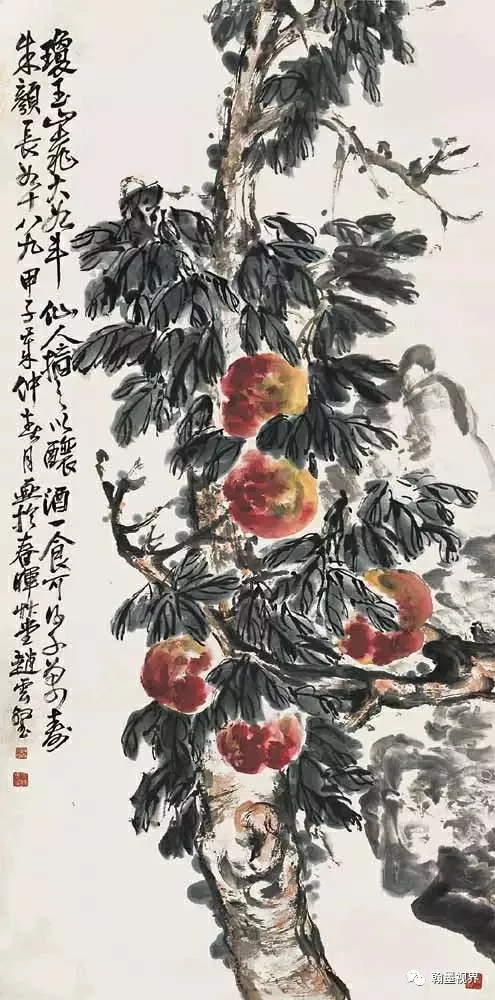 瓊玉山桃大如斗 仙人摘之以釀酒 一食可得千萬壽
朱顏長如十八九 甲子年仲春月画於春暉草堂 趙雲壑
翰墨视界